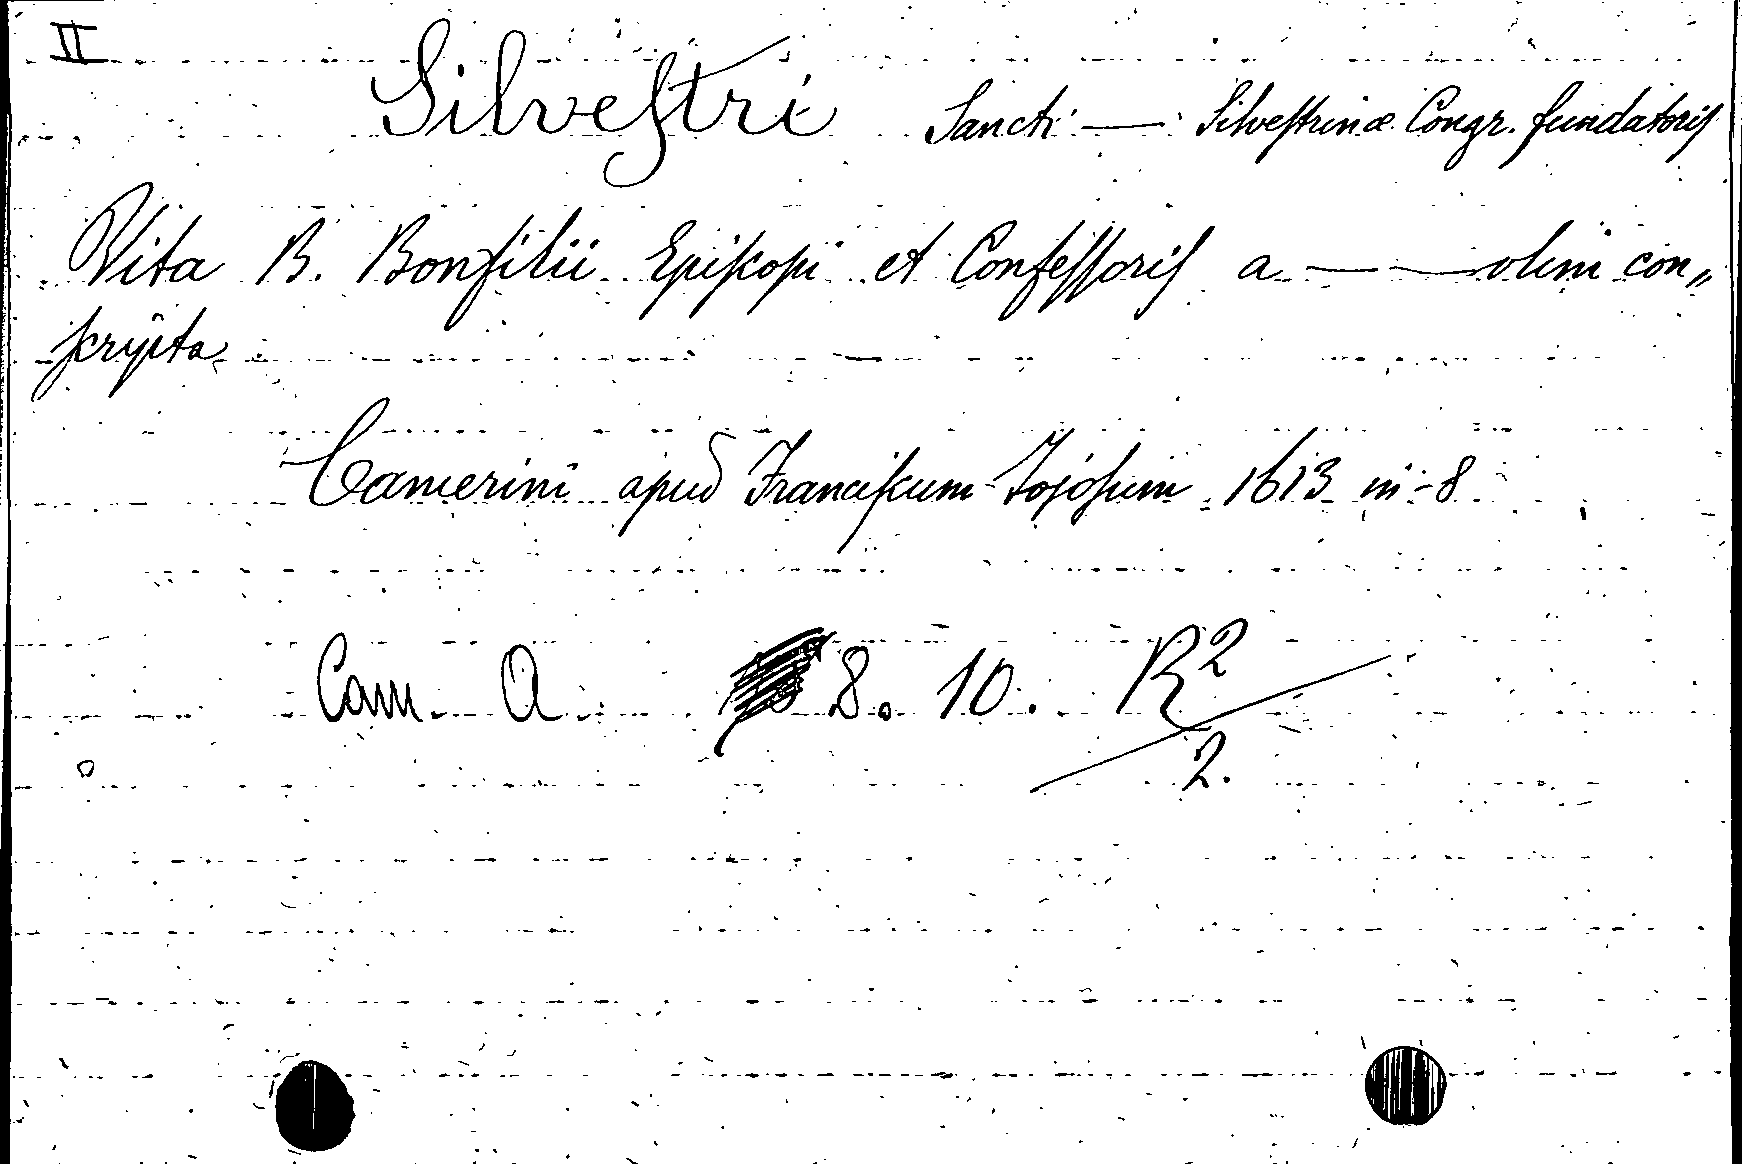 II
Silveſtri Sancti — Silveſtrinæ Congr. fundatoriſ
Vita B. Bonfilii Epiſcopi et Confeſſoriſ a — — olim con„
ſcripta
Camerini apud Franciſcum Jojoſum 1613 in-8
Cam. A. 8. 10. R2
2.